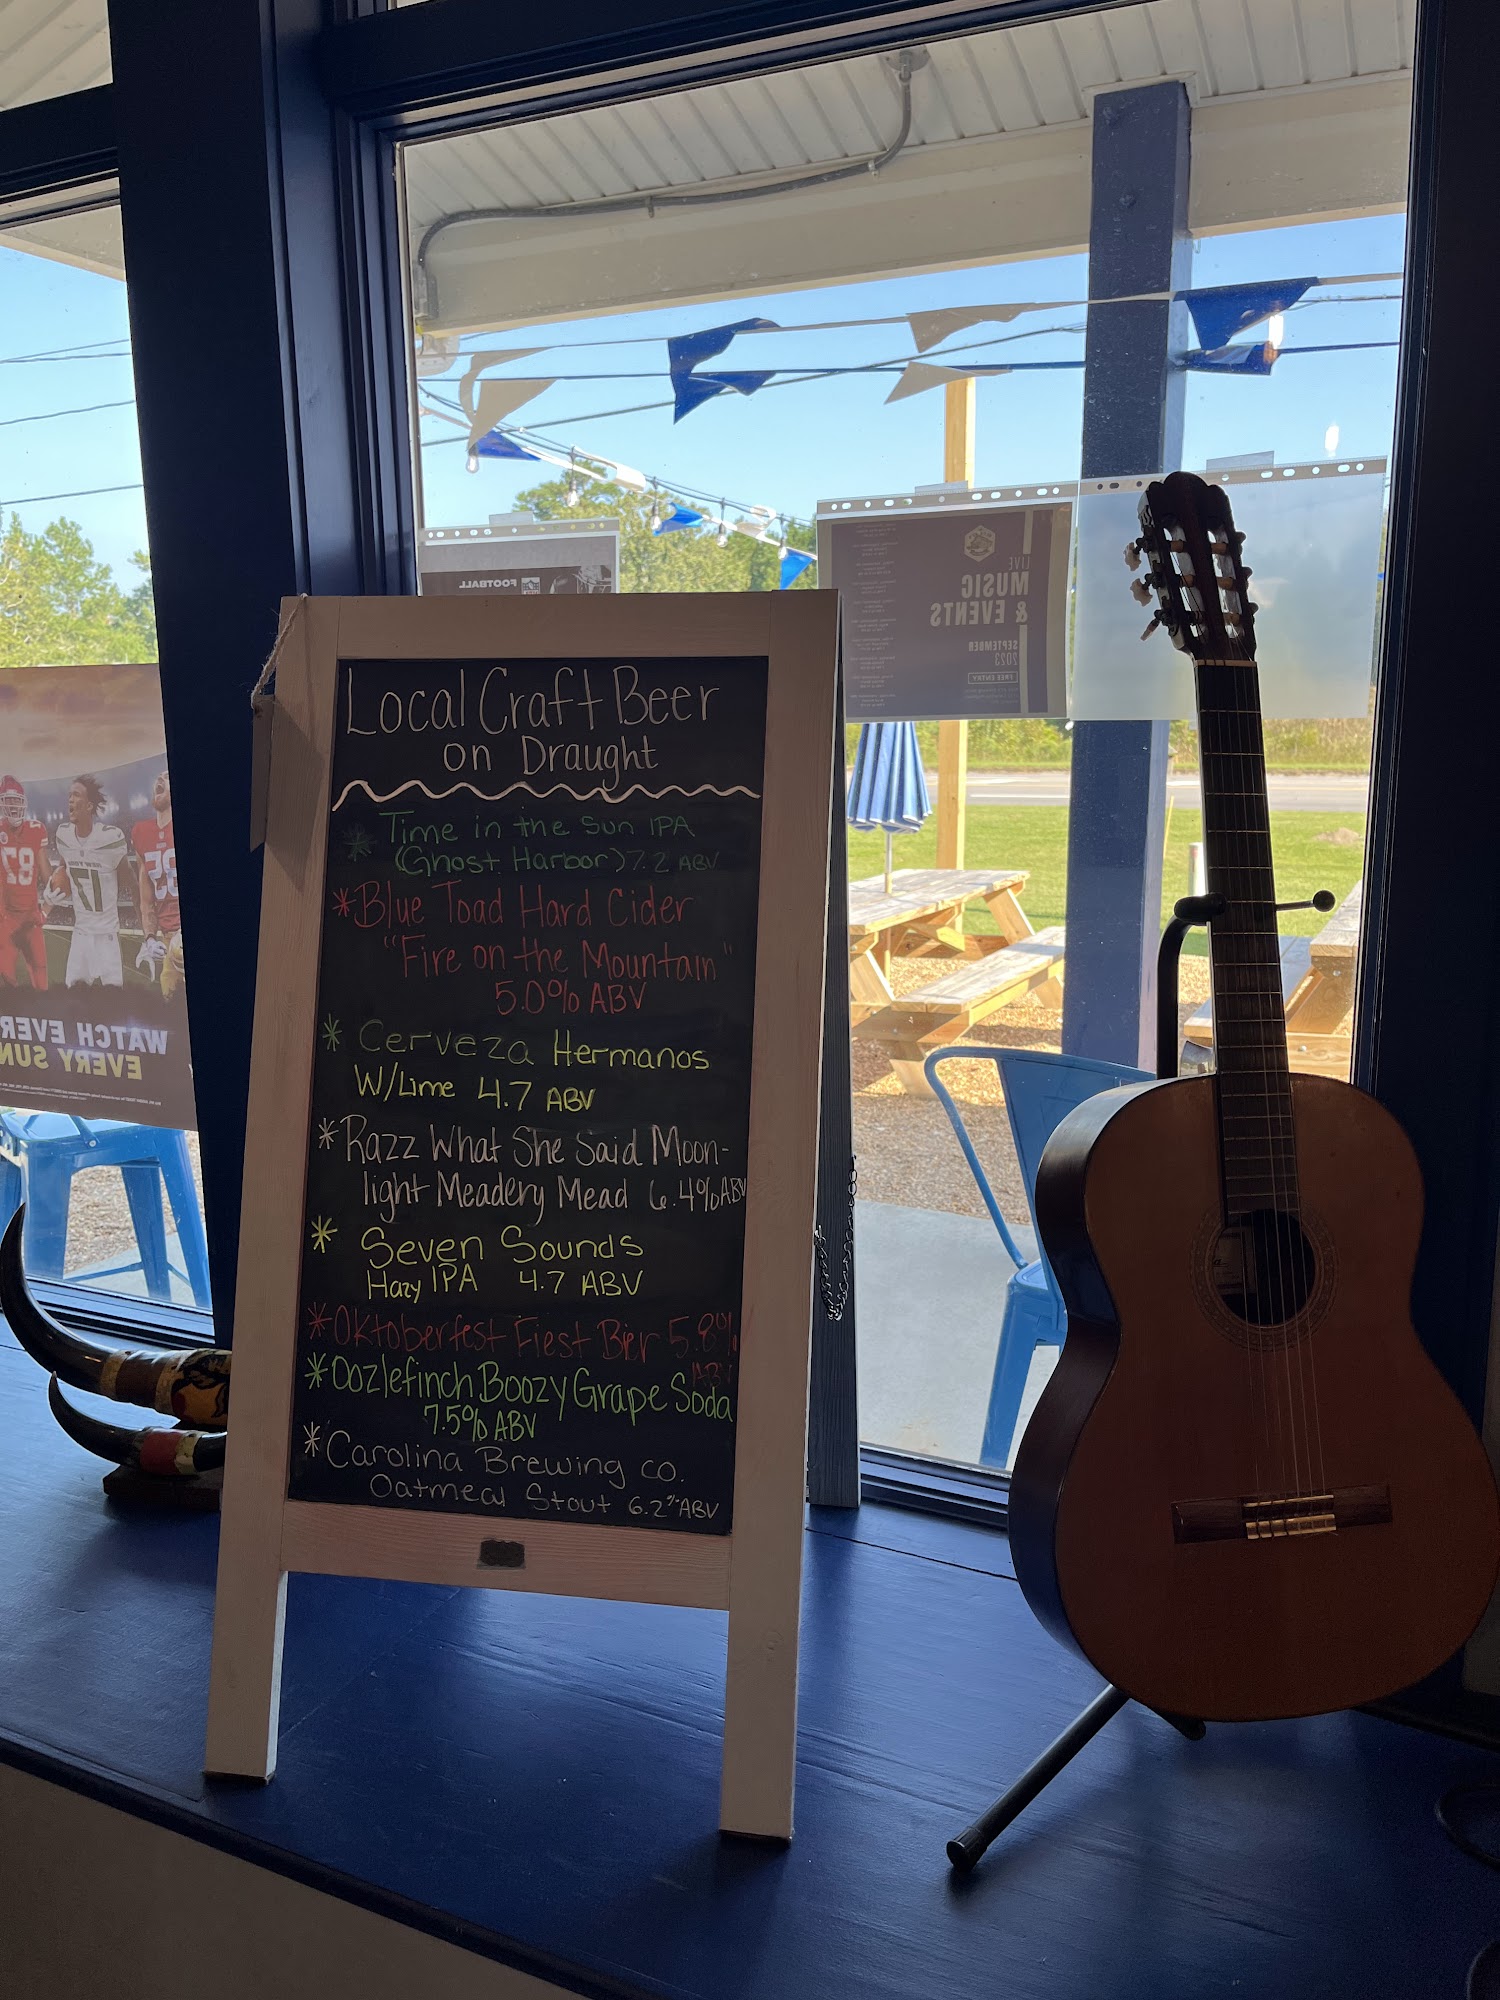 Local Craft Beer
on Draught
* Time in the Sun IPA
(Ghost Harbor) 7.2 ABV
* Blue Toad Hard Cider
"Fire on the Mountain"
5.0% ABV
* Cerveza Hermanos
W/Lime 4.7 ABV
* Razz What She Said Moon-
light Meadery Mead 6.4% ABV
* Seven Sounds
Hazy IPA 4.7 ABV
* Oktoberfest Fiest Bier 5.8%
ABV
* Oozlefinch Boozy Grape Soda
7.5% ABV
* Carolina Brewing Co.
Oatmeal Stout 6.2% ABV
FOOTBALL
LIVE
MUSIC
& EVENTS
SEPTEMBER
2023
FREE ENTRY
WATCH EVER
EVERY SUN